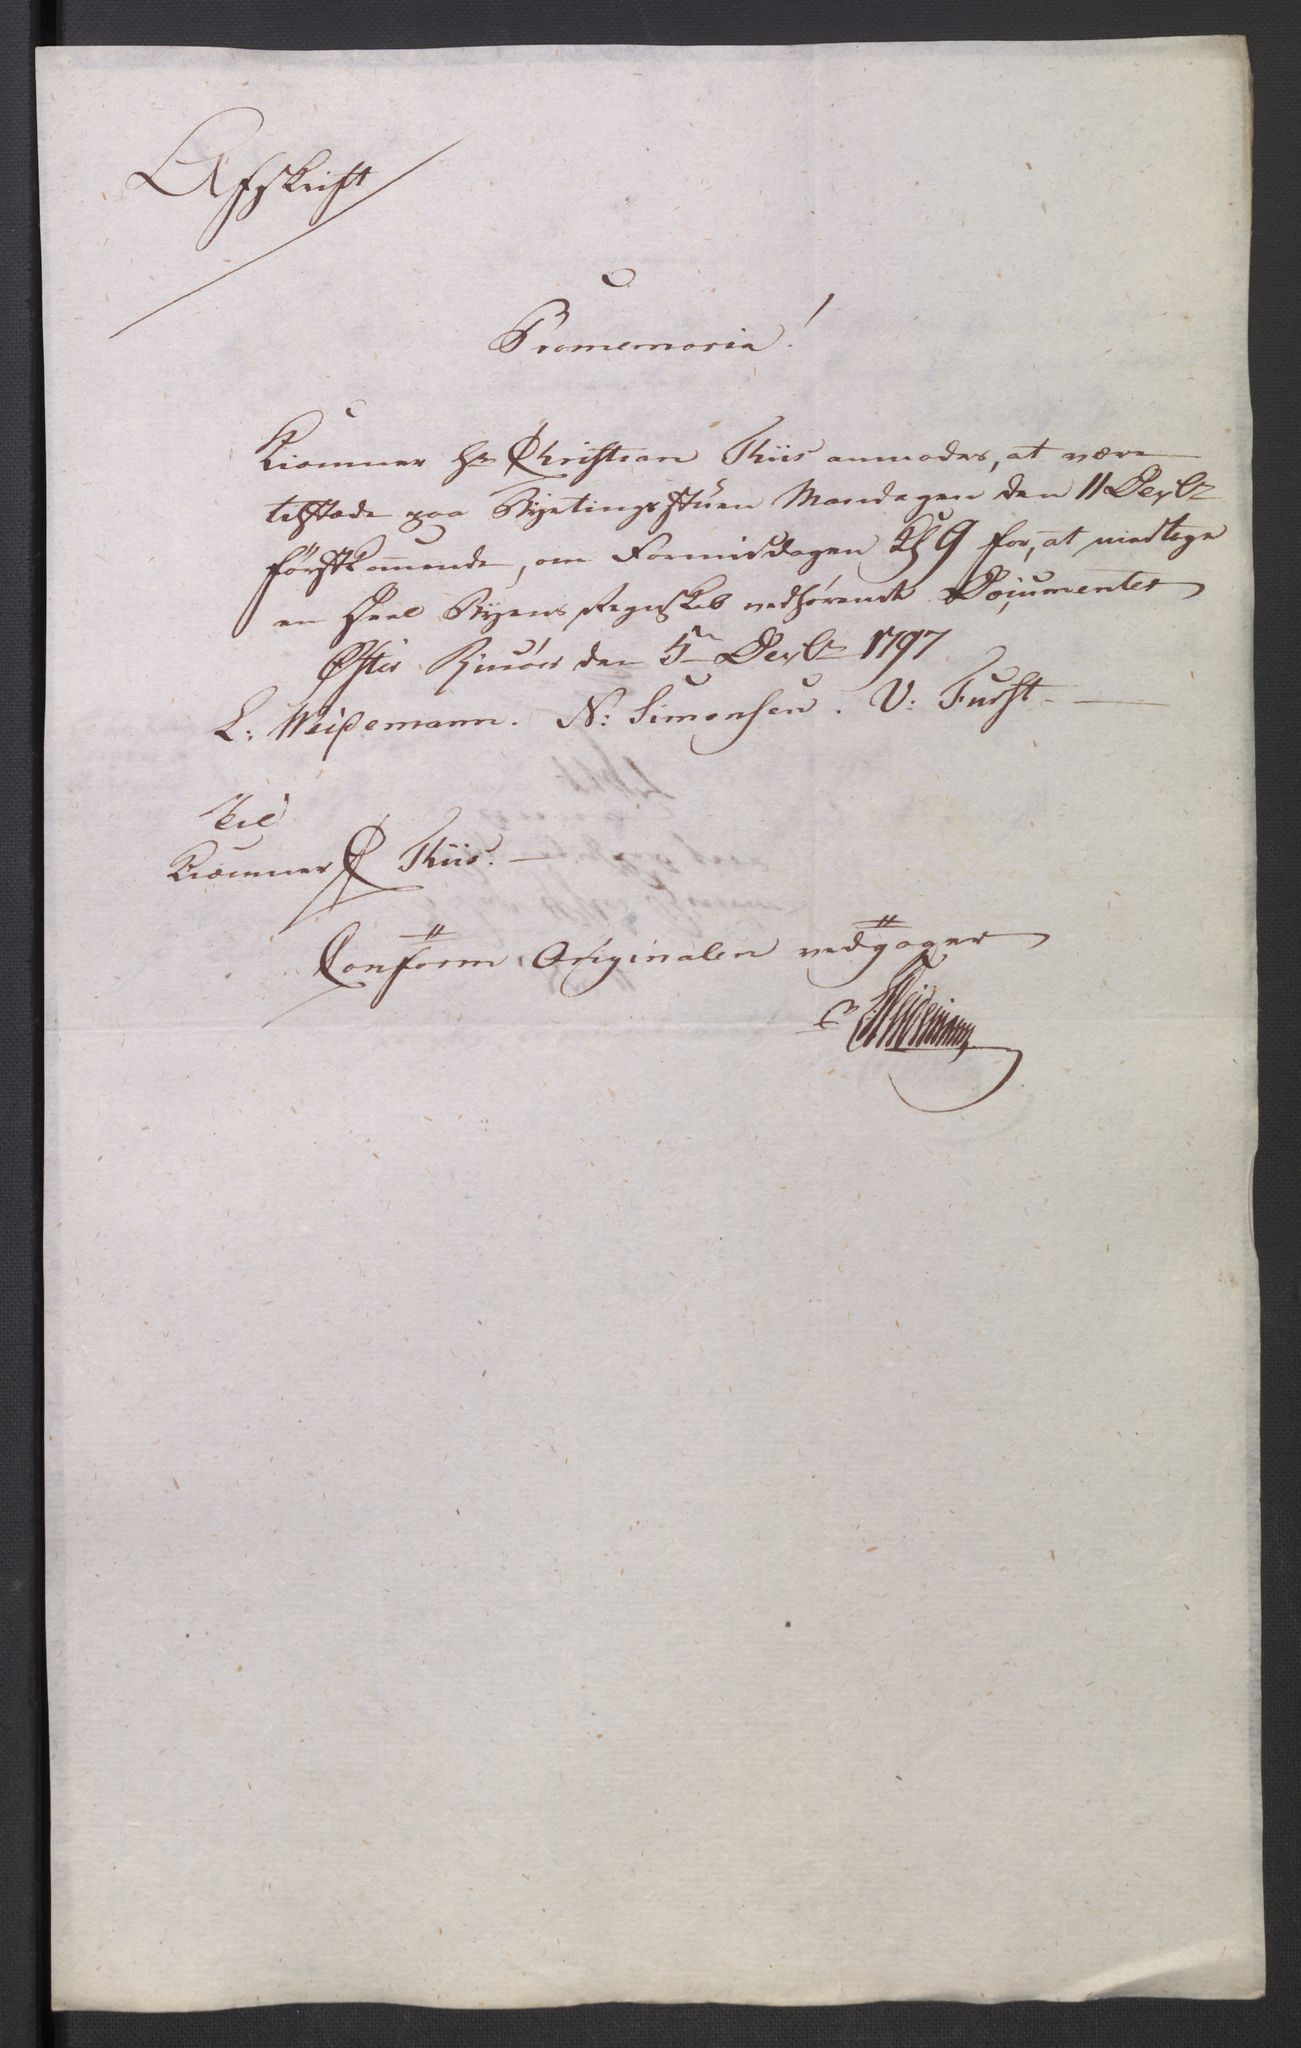 Afskrift
Promemoria!
Kræmmer Hr Christian Thiis anmodes, at være
tilstæde paa Byetingsstuen Mandagen den 11 Decbr
førstkommende, om Formiddagen Kl 9 for, at modtage
en Deel Byens Regnskab vedhørende Documenter
Øster Riisøer den 5te Decbr 1797
L: Weissemann. N: Simonsen. V: Furst.
Til
Kræmmer C Thiis.
Conform Originalen vedgaaer
Weidemann